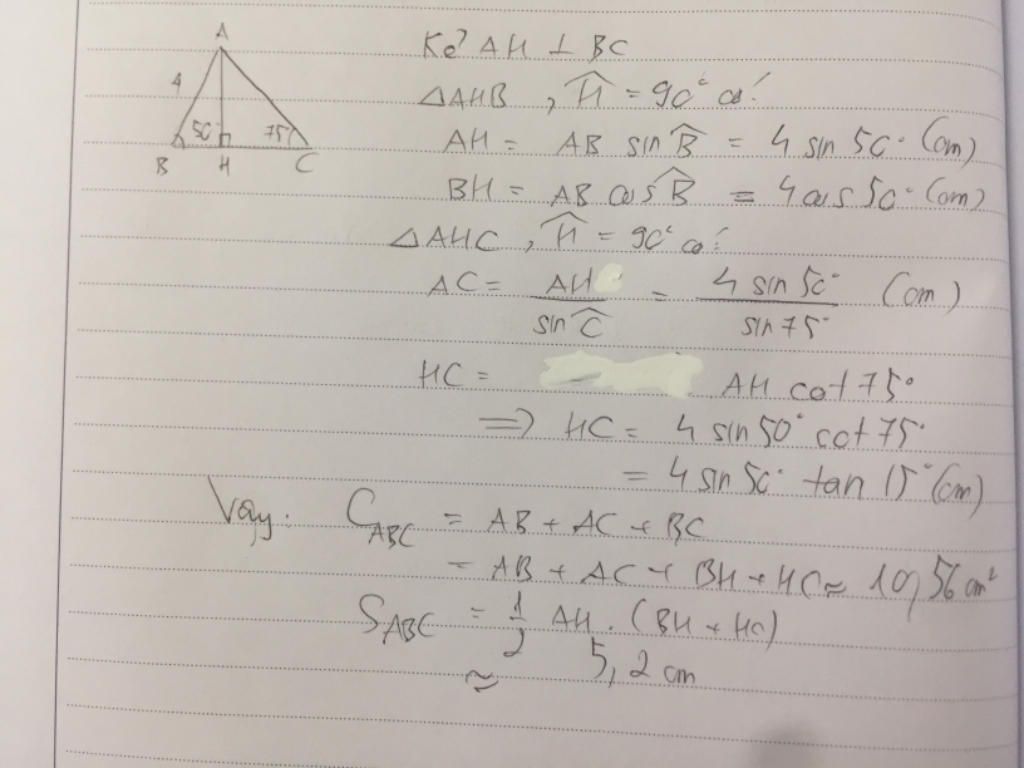 A
4
50°
75°
B
H
C
Kẻ AH ⊥ BC
△AHB, Ĥ = 90° có:
AH = AB sin B̂ = 4 sin 50° (cm)
BH = AB cos B̂ = 4 cos 50° (cm)
△AHC, Ĥ = 90° có:
AC = AH / sin Ĉ = 4 sin 50° / sin 75° (cm)
HC = AH cot 75°
⇒ HC = 4 sin 50° cot 75°
= 4 sin 50° tan 15° (cm)
Vậy: C_ABC = AB + AC + BC
= AB + AC + BH + HC ≈ 10,56 cm²
S_ABC = 1/2 AH . (BH + HC)
≈ 5,2 cm